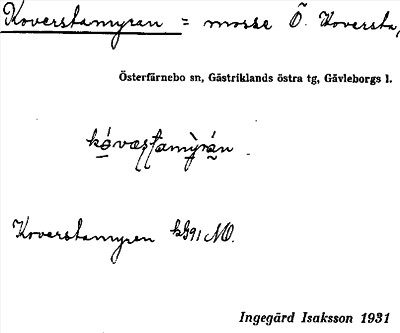 Koverstamyran = mosse Ö. Koversta,
Österfärnebo sn, Gästriklands östra tg, Gävleborgs l.
Koverstamyren NO.
Ingegärd Isaksson 1931